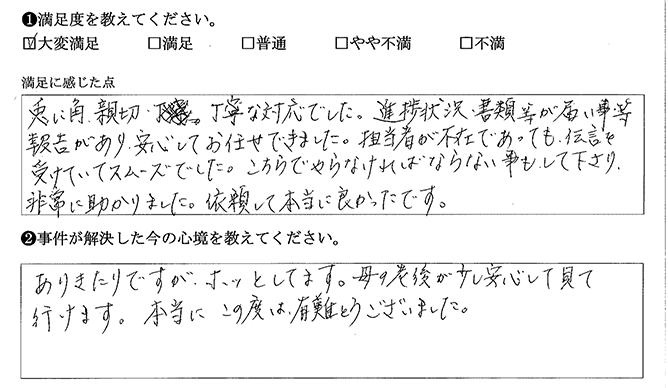 ❶満足度を教えてください。
☑大変満足 □満足 □普通 □やや不満 □不満
満足に感じた点
兎に角、親切・丁寧な対応でした。進捗状況・書類等が届い事等
報告があり、安心してお任せできました。担当者が不在であっても、伝言を
受けていてスムーズでした。こちらでやらなければならない事も、して下さり、
非常に助かりました。依頼して本当に良かったです。
❷事件が解決した今の心境を教えてください。
ありきたりですが、ホッとしてます。母の老後が少し安心して見て
行けます。本当にこの度は、有難とうございました。